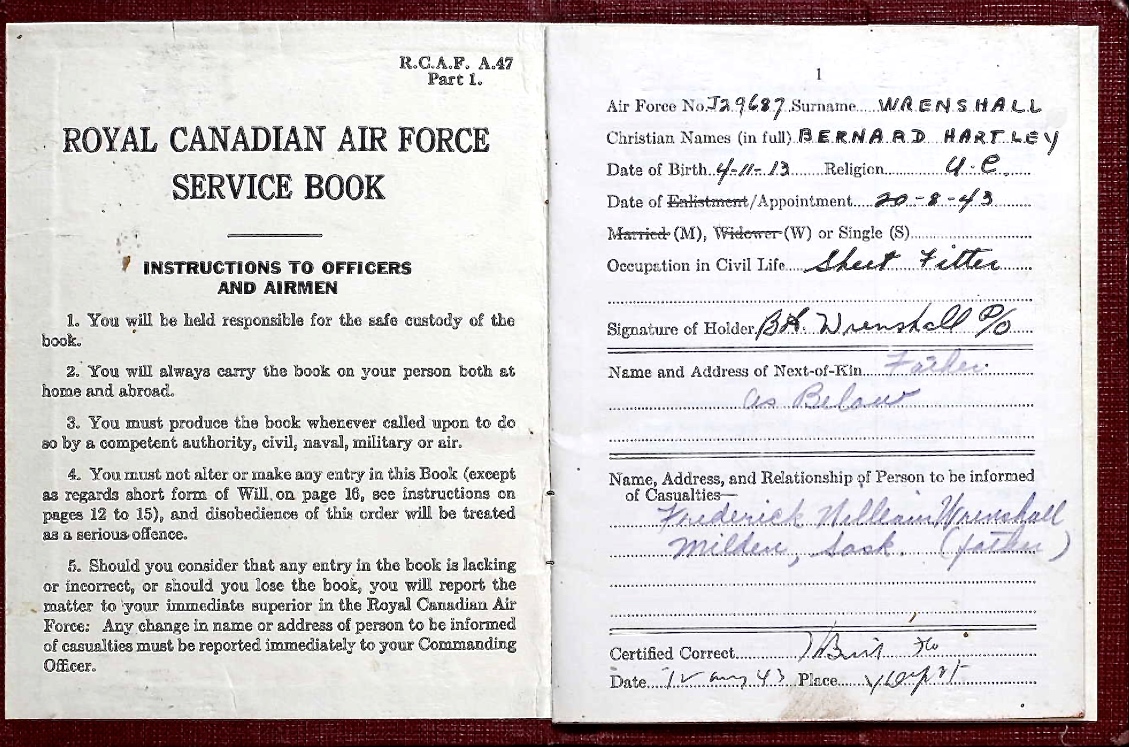 R.C.A.F. A.47
Part 1.
ROYAL CANADIAN AIR FORCE
SERVICE BOOK
INSTRUCTIONS TO OFFICERS
AND AIRMEN
1. You will be held responsible for the safe custody of the
book.
2. You will always carry the book on your person both at
home and abroad.
3. You must produce the book whenever called upon to do
so by a competent authority, civil, naval, military or air.
4. You must not alter or make any entry in this Book (except
as regards short form of Will on page 16, see instructions on
pages 12 to 15), and disobedience of this order will be treated
as a serious offence.
5. Should you consider that any entry in the book is lacking
or incorrect, or should you lose the book, you will report the
matter to your immediate superior in the Royal Canadian Air
Force: Any change in name or address of person to be informed
of casualties must be reported immediately to your Commanding
Officer.
1
Air Force No. J29687 Surname WRENSHALL
Christian Names (in full) BERNARD HARTLEY
Date of Birth 4-11-13 Religion U.C.
Date of Enlistment/Appointment 20-8-43
Married (M), Widower (W) or Single (S)
Occupation in Civil Life Sheet Fitter
Signature of Holder B.H. Wrenshall P/O
Name and Address of Next-of-Kin Father
as Below
Name, Address, and Relationship of Person to be informed
of Casualties—
Frederick William Wrenshall
Milden, Sask. (father)
Certified Correct
Date 43 Place